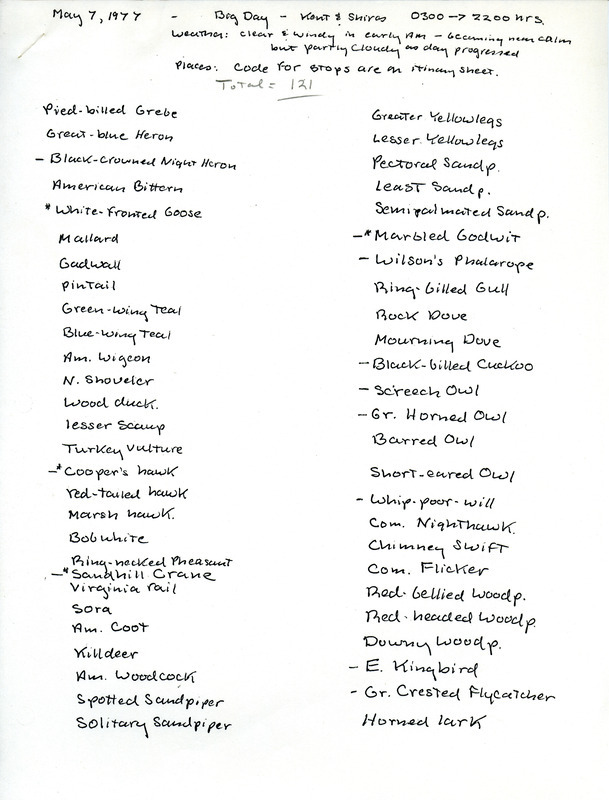 May 7, 1977 - Big Day - Kent & Shiras 0300 → 2200 hrs.
Weather: clear & windy in early Am - becoming near calm
but partly cloudy as day progressed
Places: Code for stops are on itinary sheet.
Total = 121
Pied-billed Grebe
Great-blue Heron
- Black-crowned Night Heron
American Bittern
* White-fronted Goose
Mallard
Gadwall
Pintail
Green-wing Teal
Blue-wing Teal
Am. Wigeon
N. Shoveler
Wood duck.
lesser Scaup
Turkey Vulture
-* Cooper's hawk
red-tailed hawk
Marsh hawk.
Bobwhite
Ring-necked Pheasant
-* Sandhill Crane
Virginia rail
Sora
Am. Coot
Killdeer
Am. Woodcock
Spotted Sandpiper
Solitary Sandpiper
Greater Yellowlegs
Lesser Yellowlegs
Pectoral Sandp.
Least Sandp.
Semipalmated Sandp.
-* Marbled Godwit
- Wilson's Phalarope
Ring-billed Gull
Rock Dove
Mourning Dove
- Black-billed Cuckoo
- Screech Owl
- Gr. Horned Owl
Barred Owl
Short-eared Owl
- Whip-poor-will
Com. Nighthawk.
Chimney Swift
Com. Flicker
Red-bellied Woodp.
Red-headed Woodp.
Downy Woodp.
- E. Kingbird
- Gr. Crested Flycatcher
Horned lark